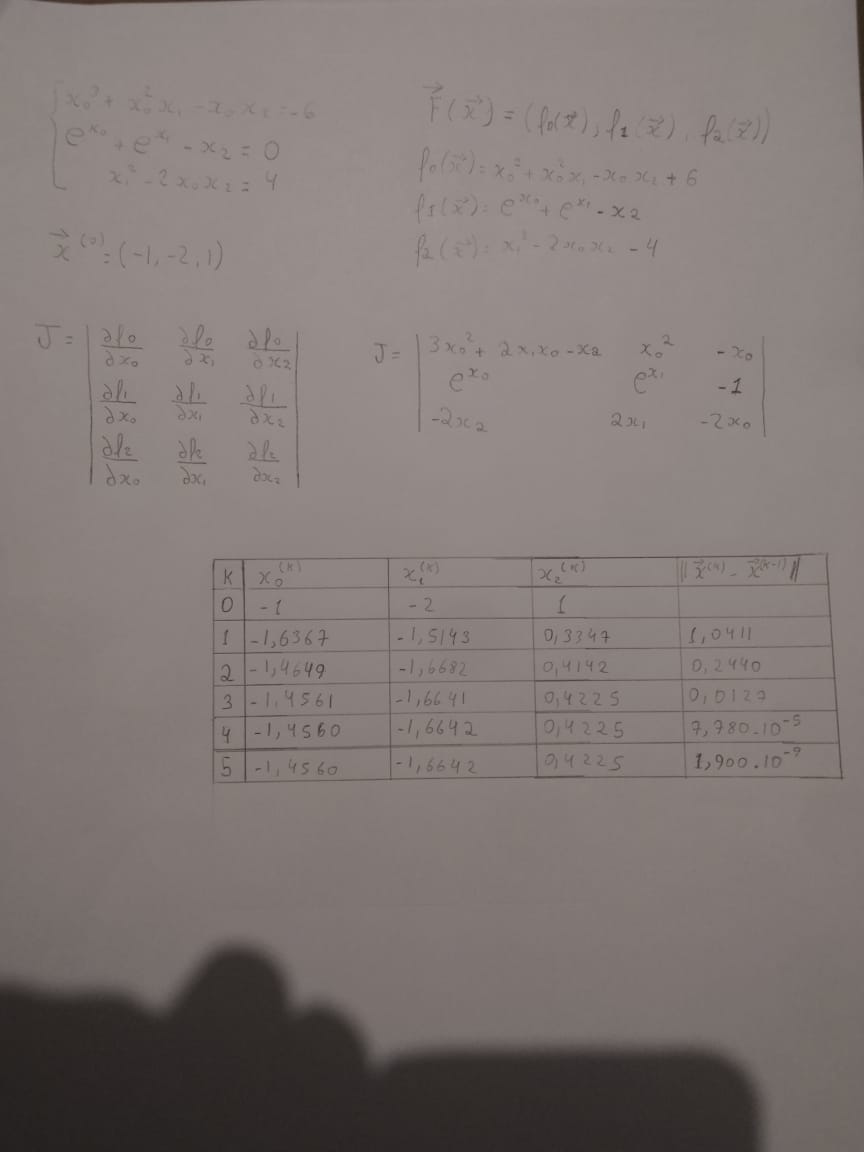 x₀³ + x₀²x₁ - x₀x₂ = -6
e^x₀ + e^x₁ - x₂ = 0
x₁² - 2x₀x₂ = 4
x⃗⁽⁰⁾ = (-1, -2, 1)
F⃗(x⃗) = (f₀(x⃗), f₁(x⃗), f₂(x⃗))
f₀(x⃗) = x₀³ + x₀²x₁ - x₀x₂ + 6
f₁(x⃗) = e^x₀ + e^x₁ - x₂
f₂(x⃗) = x₁² - 2x₀x₂ - 4
J = | ∂f₀/∂x₀ ∂f₀/∂x₁ ∂f₀/∂x₂ |
| ∂f₁/∂x₀ ∂f₁/∂x₁ ∂f₁/∂x₂ |
| ∂f₂/∂x₀ ∂f₂/∂x₁ ∂f₂/∂x₂ |
J = | 3x₀² + 2x₁x₀ - x₂ x₀² -x₀ |
| e^x₀ e^x₁ -1 |
| -2x₂ 2x₁ -2x₀ |
K x₀⁽ᴷ⁾ x₁⁽ᴷ⁾ x₂⁽ᴷ⁾ ||x⃗⁽ᴷ⁾ - x⃗⁽ᴷ⁻¹⁾||
0 -1 -2 1
1 -1,6367 -1,5143 0,3347 1,0411
2 -1,4649 -1,6682 0,4142 0,2440
3 -1,4561 -1,6641 0,4225 0,0127
4 -1,4560 -1,6642 0,4225 7,780.10⁻⁵
5 -1,4560 -1,6642 0,4225 1,900.10⁻⁹